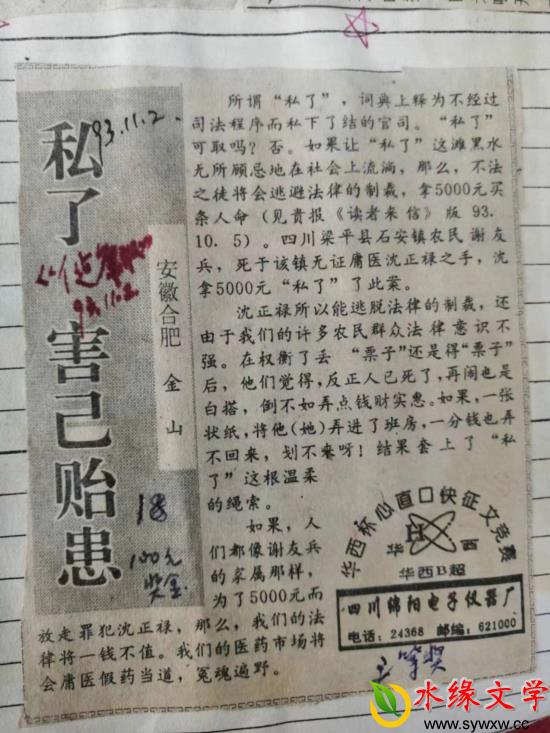 私了 害己贻患
93.11.2
93.11.2
安徽合肥 金山
18
100元
奖金
所谓“私了”，词典上释为不经过
司法程序而私下了结的官司。“私了”
可取吗？否。如果让“私了”这滩黑水
无所顾忌地在社会上流淌，那么，不法
之徒将会逃避法律的制裁，拿5000元买
条人命（见贵报《读者来信》版93.
10.5）。四川梁平县石安镇农民谢友
兵，死于该镇无证庸医沈正禄之手，沈
拿5000元“私了”了此案。
沈正禄所以能逃脱法律的制裁，还
由于我们的许多农民群众法律意识不
强。在权衡了丢“票子”还是得“票子”
后，他们觉得，反正人已死了，再闹也是
白搭，倒不如弄点钱财实惠。如果，一张
状纸，将他（她）弄进了班房，一分钱也弄
不回来，划不来呀！结果套上了“私
了”这根温柔
的绳索。
如果，人
们都像谢友兵
的家属那样，
为了5000元而
放走罪犯沈正禄，那么，我们的法
律将一钱不值。我们的医药市场将
会庸医假药当道，冤魂遍野。
华西杯心直口快征文竞赛
华西
华西B超
四川绵阳电子仪器厂
电话：24368 邮编：621000
等奖
水缘文学
www.sywxw.cc